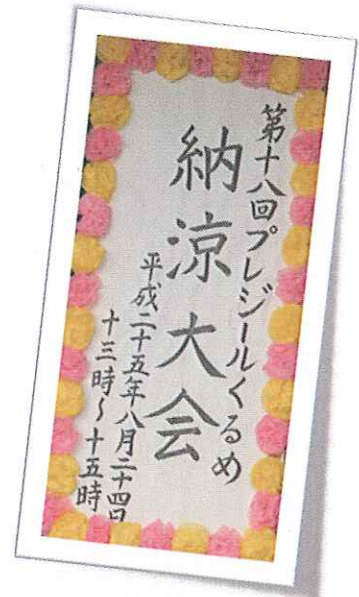 第十八回プレジールくるめ
納涼大会
平成二十五年八月二十四日
十三時～十五時